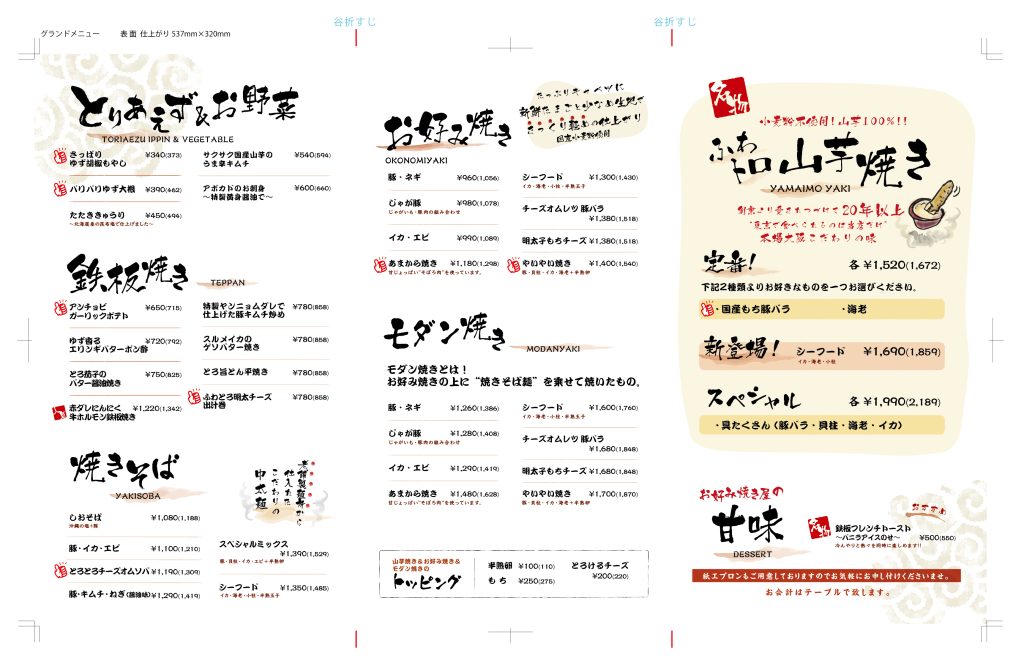 グランドメニュー 表面 仕上がり 537mm×320mm
谷折すじ
谷折すじ
とりあえず&お野菜
TORIAEZU IPPIN & VEGETABLE
さっぱり
ゆず胡椒もやし ¥340(373)
バリバリゆず大根 ¥390(462)
たたききゅうり ¥450(494)
サクサク国産山芋の
うま辛キムチ ¥540(594)
アボカドのお刺身
〜特製黄身醤油で〜 ¥600(660)
鉄板焼き
TEPPAN
アンチョビ
ガーリックポテト ¥650(715)
ゆず香る
エリンギバターポン酢 ¥720(792)
とろ茄子の
バター醤油焼き ¥750(825)
赤ダレにんにく
牛ホルモン鉄板焼き ¥1,220(1,342)
特製ヤンニョムダレで
仕上げた豚キムチ炒め ¥780(858)
スルメイカの
ゲソバター焼き ¥780(858)
とろ旨とん平焼き ¥780(858)
ふわとろ明太チーズ
出汁巻 ¥780(858)
焼きそば
YAKISOBA
老舗製麺所から
仕入れた
こだわりの
中太麺
しおそば ¥1,080(1,188)
沖縄の塩+豚
豚・イカ・エビ ¥1,100(1,210)
とろとろチーズオムソバ ¥1,190(1,309)
豚・キムチ・ねぎ(醤油味) ¥1,290(1,419)
スペシャルミックス
¥1,390(1,529)
豚・貝柱・イカ・エビ+半熟卵
シーフード ¥1,350(1,485)
イカ・海老・小柱・半熟玉子
お好み焼き
OKONOMIYAKI
たっぷりキャベツに
新鮮たまごと少なめ生地で
さっくり極めの仕上がり
国産小麦粉使用
豚・ネギ ¥960(1,056)
じゃが豚 ¥980(1,078)
じゃがいも・豚肉の組み合わせ
イカ・エビ ¥990(1,089)
あまから焼き ¥1,180(1,298)
甘じょっぱい"そぼろ肉"を使っています。
シーフード ¥1,300(1,430)
イカ・海老・小柱・半熟玉子
チーズオムレツ 豚バラ
¥1,380(1,518)
明太子もちチーズ ¥1,380(1,518)
やいやい焼き ¥1,400(1,540)
豚・貝柱・イカ・海老+半熟卵
モダン焼き
MODANYAKI
モダン焼きとは！
お好み焼きの上に“焼きそば麺”を乗せて焼いたもの。
豚・ネギ ¥1,260(1,386)
じゃが豚 ¥1,280(1,408)
じゃがいも・豚肉の組み合わせ
イカ・エビ ¥1,290(1,419)
あまから焼き ¥1,480(1,628)
甘じょっぱい"そぼろ肉"を使っています。
シーフード ¥1,600(1,760)
イカ・海老・小柱・半熟玉子
チーズオムレツ 豚バラ
¥1,680(1,848)
明太子もちチーズ ¥1,680(1,848)
やいやい焼き ¥1,700(1,870)
豚・貝柱・イカ・海老+半熟卵
山芋焼き&お好み焼き&
モダン焼きの
トッピング
半熟卵 ¥100(110)
もち ¥250(275)
とろけるチーズ
¥200(220)
名物
小麦粉不使用！山芋100%!!
ふわとろ山芋焼き
YAMAIMO YAKI
創業より愛されつづけて20年以上
"東京で食べられるのは当店だけ"
本場大阪こだわりの味
定番！ 各¥1,520(1,672)
下記2種類よりお好きなものを一つお選びください。
・国産もち豚バラ ・海老
新登場！ シーフード ¥1,690(1,859)
イカ・海老・小柱
スペシャル 各¥1,990(2,189)
・具たくさん（豚バラ・貝柱・海老・イカ）
お好み焼き屋の
甘味
DESSERT
おすすめ
名物
鉄板フレンチトースト
〜バニラアイスのせ〜 ¥500(550)
ひんやりと熱々を同時に楽しめます!!
紙エプロンもご用意しておりますのでお気軽にお申し付けくださいませ。
お会計はテーブルで致します。